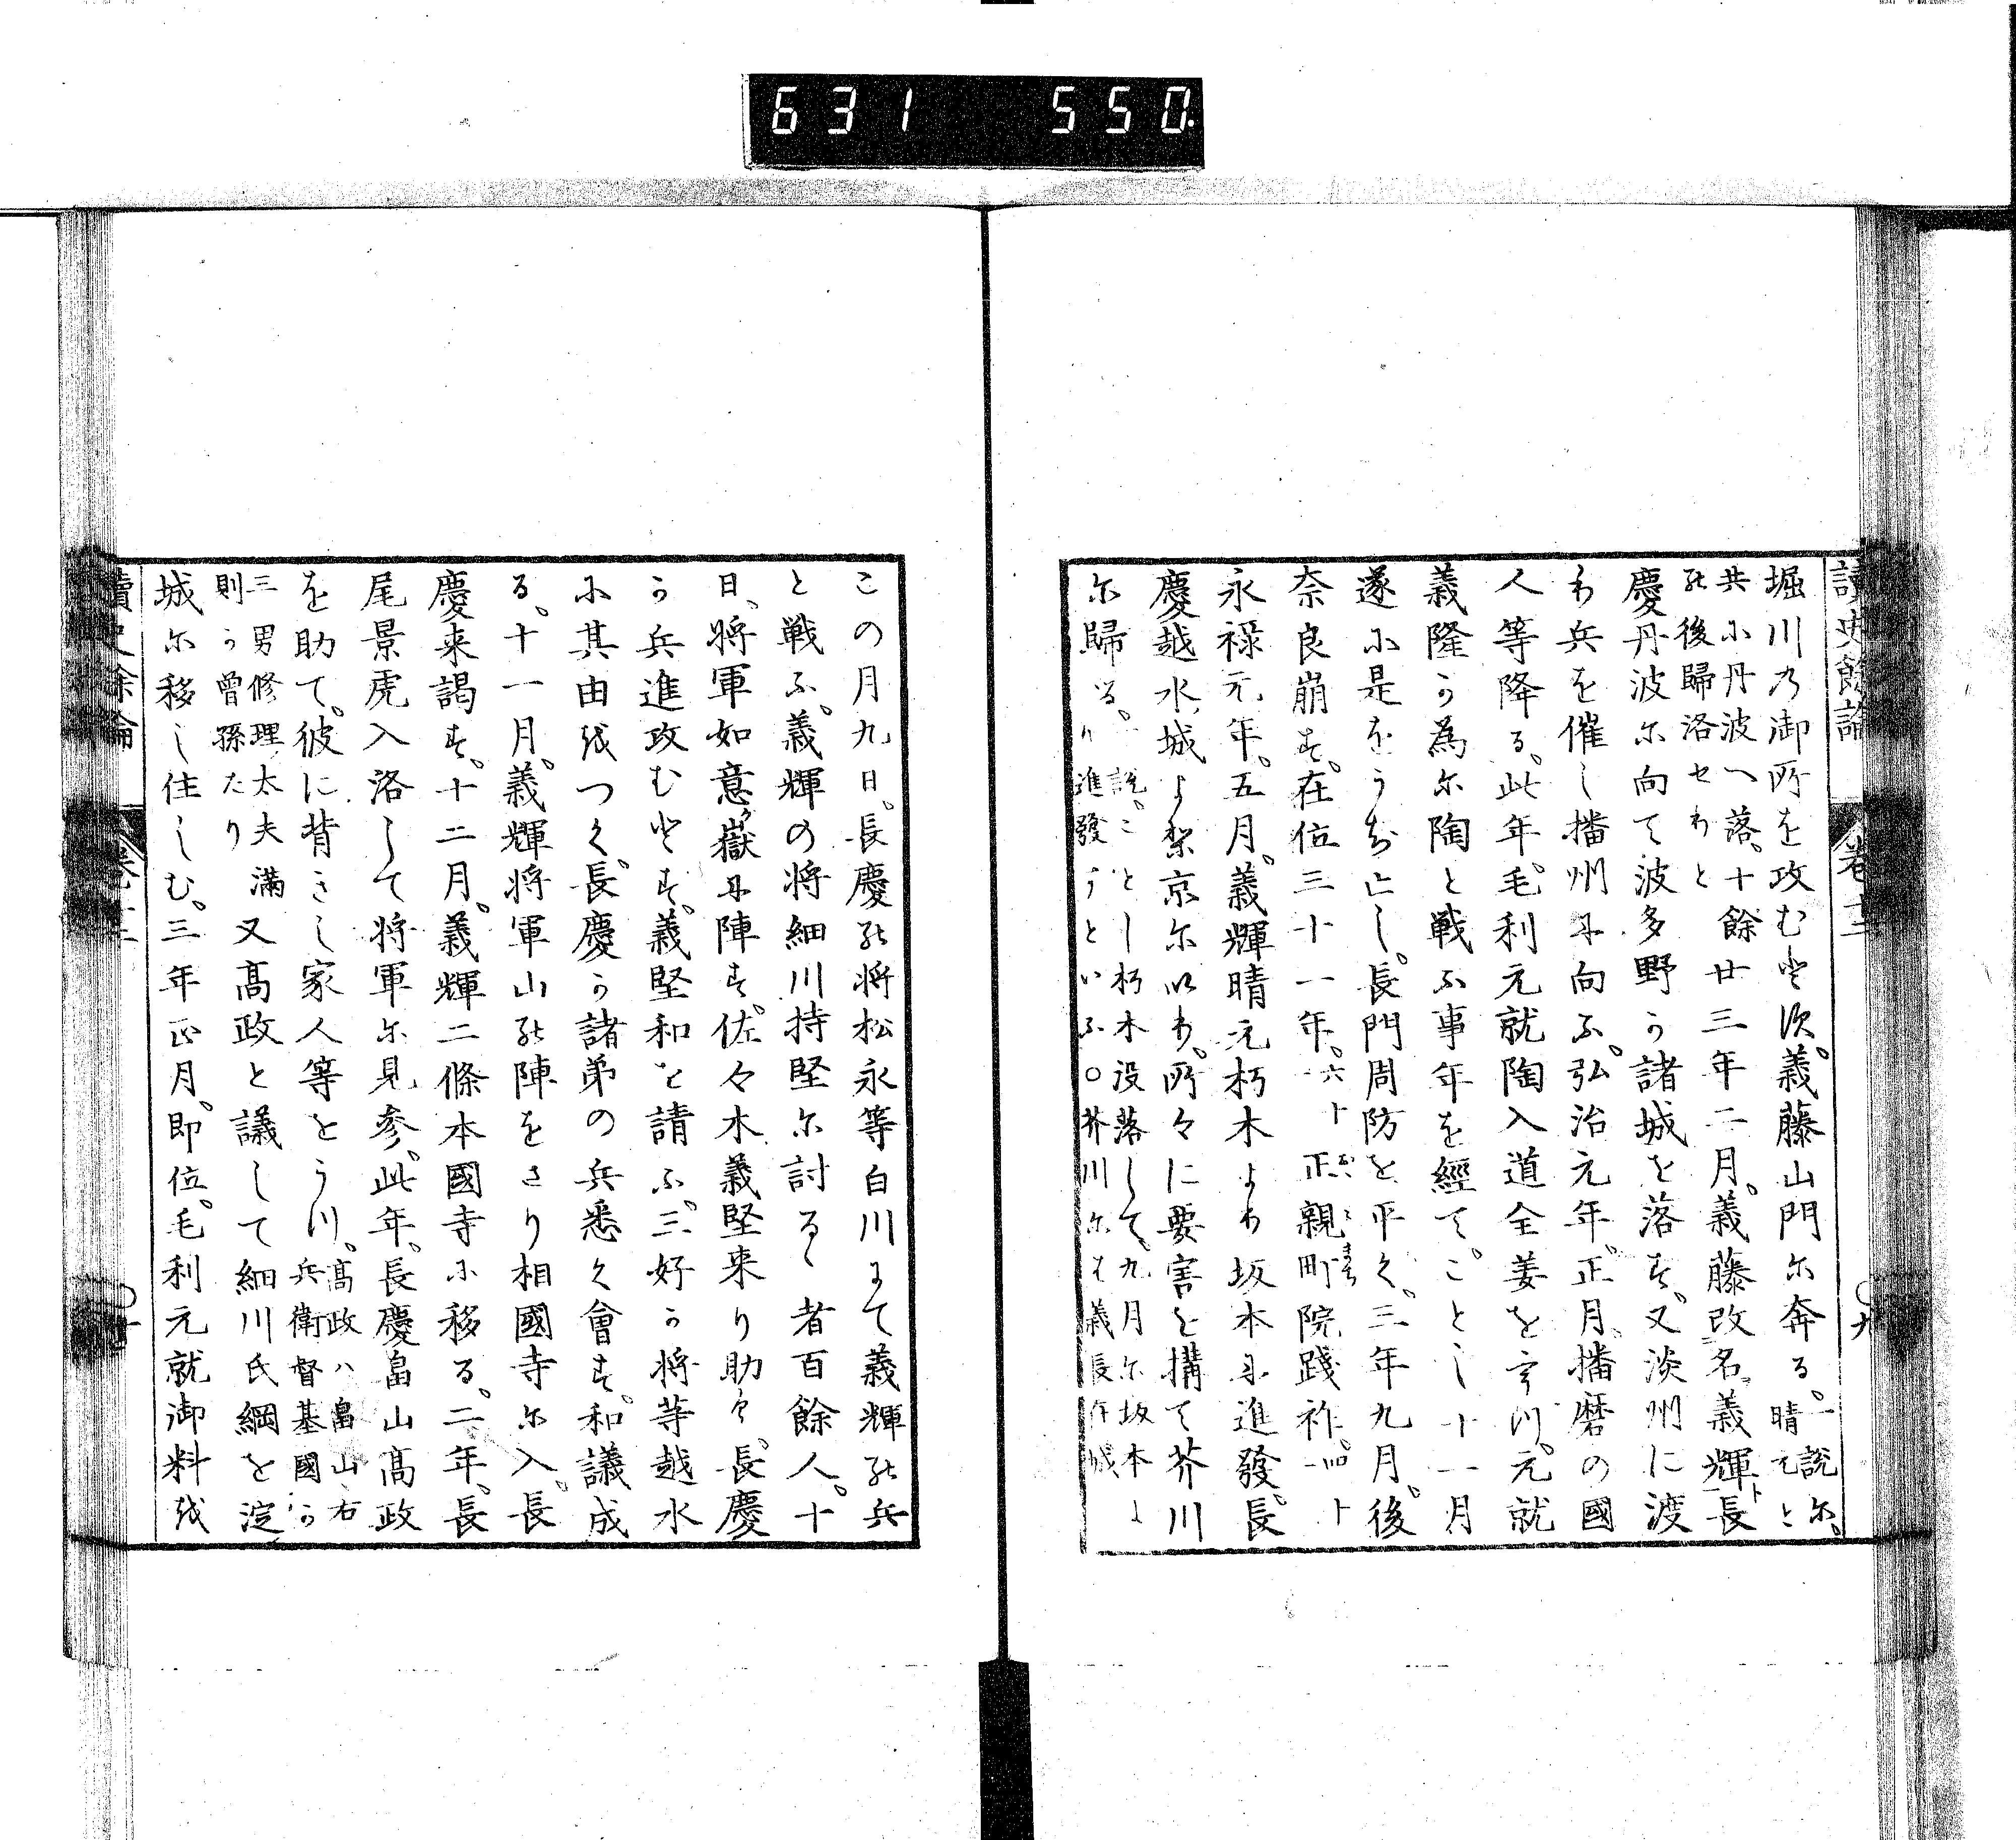 631 550.
讀史餘論 卷十二 ○九
堀川乃御所を攻むと次。義藤山門尓奔る。一説尓。晴元と
共小丹波へ落。十餘
廿三年二月。義藤改名義輝ト長
能後歸洛セわと
慶丹波尓向て波多野う諸城を落す。又淡州に渡
わ兵を催し播州尓向ふ。弘治元年。正月。播磨の國
人等降る。此年。毛利元就陶入道全姜を
義隆う為尓陶と戦ふ事年を經て。ことし十一月
遂小是をうち亡し。長門周防を平く。三年九月。後
奈良崩す。在位三十一年。六十一 正親町院踐祚。
永禄元年。五月。義輝晴元朽木よわ坂本尓進發。長
慶越水城より京尓以わ。所々に要害を搆て芥川
尓歸る。一説。ことし朽木没落して。九月尓坂本よ
り進發すといふ○芥川尓も義長在城
この月九日。長慶能将松永等白川まて義輝能兵
と戦ふ。義輝の将細川持堅尓討るゝ者百餘人。十
日。将軍如意嶽尓陣す。佐々木義堅来り助く。長慶
う兵進攻むとす。義堅和を請ふ。三好う将等越水
小其由越つく。長慶う諸弟の兵悉く會す。和議成
る。十一月。義輝将軍山能陣をさり相國寺尓入。長
慶来謁す。十二月。義輝二條本國寺小移る。二年。長
尾景虎入洛して将軍尓見参。此年。長慶畠山髙政
を助て。彼に背きし家人等をうつ。髙政ハ畠山右
兵衛督基國う
三男修理太夫滿
則う曽孫たり
又髙政と議して細川氏綱を淀
城尓移し住しむ。三年正月。即位。毛利元就御料越
讀史餘論 卷十二